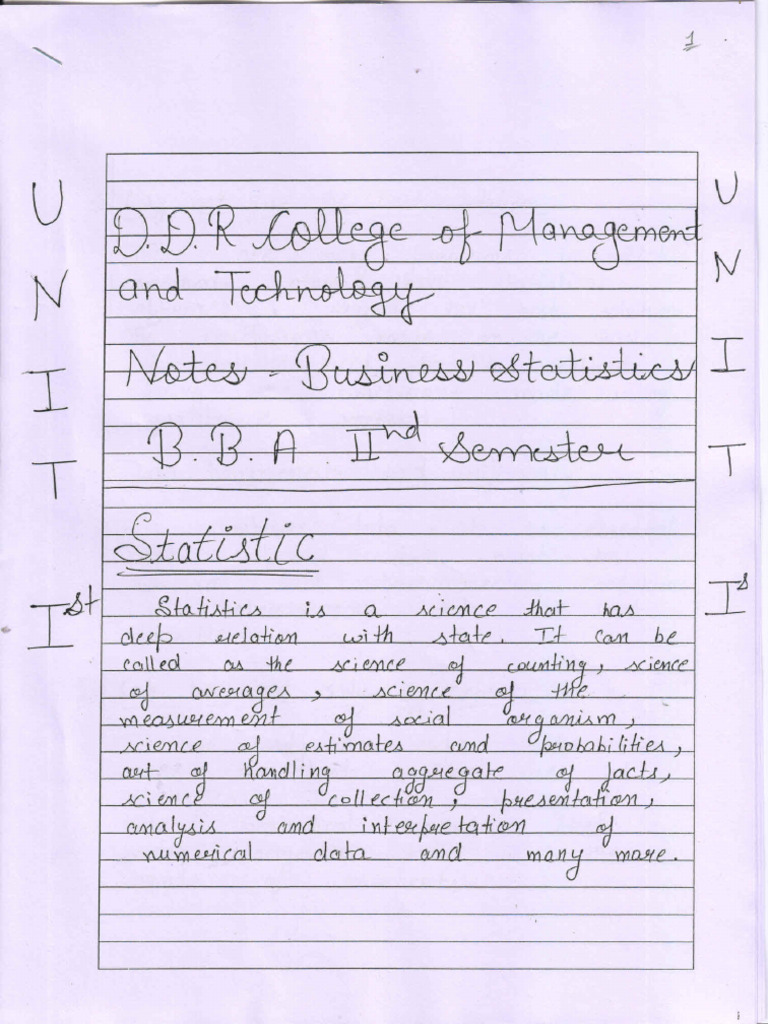 1
UNIT Ist
D.D.R College of Management
and Technology
Notes - Business Statistics
B.B.A IInd Semester
Statistic
Statistics is a science that has
deep relation with state. It can be
called as the science of counting, science
of averages, science of the
measurement of social organism,
science of estimates and probabilities,
art of handling aggregate of facts,
science of collection, presentation,
analysis and interpretation of
numerical data and many more.
UNIT Is